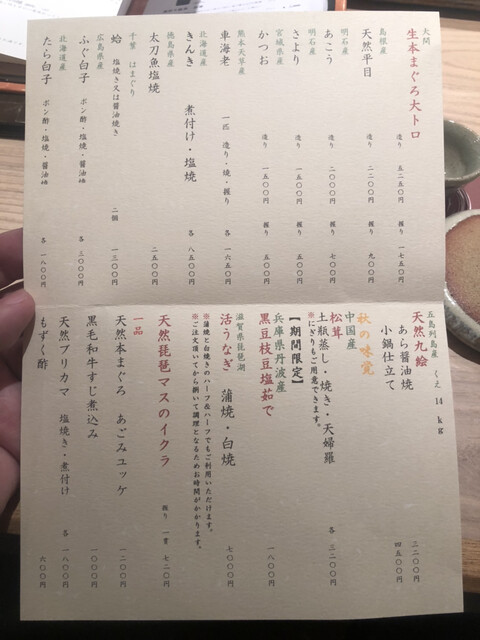 大間
生本まぐろ大トロ 造り 五二五〇円 握り 一七五〇円
島根産
天然平目 造り 二二〇〇円 握り 九〇〇円
明石産
あこう 造り 二〇〇〇円 握り 七〇〇円
明石産
さより 造り 一五〇〇円 握り 五〇〇円
宮城県産
かつお 造り 一五〇〇円 握り 五〇〇円
熊本天草産
車海老 一匹 造り・焼・握り 各 一六五〇円
北海道産
きんき 煮付け・塩焼 各 八五〇〇円
徳島県産
太刀魚塩焼 二五〇〇円
千葉 はまぐり
蛤 塩焼き又は醤油焼き 二個 一三〇〇円
広島県産
ふぐ白子 ポン酢・塩焼・醤油焼 各 三〇〇〇円
北海道産
たら白子 ポン酢・塩焼・醤油焼 各 一八〇〇円
五島列島産 くえ 14kg
天然九絵
あら醤油焼 三二〇〇円
小鍋仕立て 四五〇〇円
秋の味覚
中国産
松茸
土瓶蒸し・焼き・天婦羅 各 三二〇〇円
※にぎりもご用意できます。
【期間限定】
兵庫県丹波産
黒豆枝豆塩茹で 一八〇〇円
滋賀県琵琶湖
活うなぎ 蒲焼・白焼 七〇〇〇円
※蒲焼と白焼きのハーフ&ハーフでもご利用いただけます。
※ご注文頂いてから捌いて調理となるためお時間がかかります。
天然琵琶マスのイクラ 握り 一貫 七二〇円
一品
天然本まぐろ あごみユッケ 一二〇〇円
黒毛和牛すじ煮込み 一〇〇〇円
天然ブリカマ 塩焼き・煮付け 各 一八〇〇円
もずく酢 六〇〇円